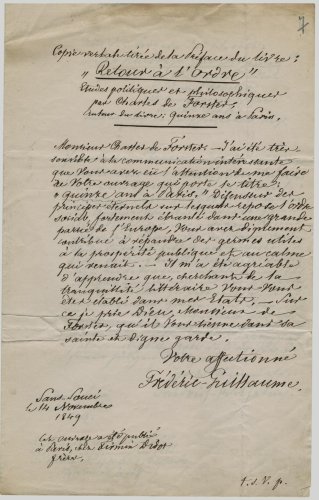 7
Copie verbale tirée de la Préface du livre:
"Retour à l'Ordre"
Etudes politiques et philosophiques
par Charles de Forster,
auteur du livre: Quinze ans à Paris.
Monsieur Charles de Forster. J'ai été très
sensible à la communication intéressante
que Vous avez eu l'attention de me faire
de Votre ouvrage qui porte le titre:
"Quinze ans à Paris." Défenseur des
principes éternels sur lesquels repose l'ordre
social, fortement ébranlé dans une grande
partie de l'Europe, Vous avez dignement
contribué à répandre des germes utiles
à la prospérité publique et au calme
qui renait. Il m'a été agréable
d'apprendre que, cherchant de la
tranquillité littéraire Vous Vous
êtes établi dans mes Etats. Sur
ce je prie Dieu, Monsieur de
Forster, qu'il Vous tienne dans sa
sainte et digne garde.
Votre affectionné
Frédéric-Guillaume.
Sans Souci
le 14 Novembre
1849
Cet ouvrage a été publié
à Paris, chez Firmin Didot
frères.
t.s.V.p.